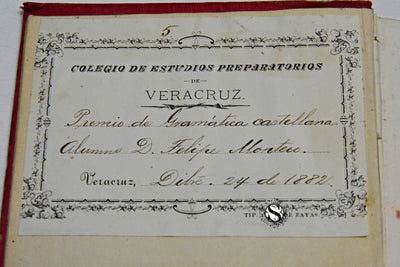 5
COLEGIO DE ESTUDIOS PREPARATORIOS
DE
VERACRUZ.
Premio de Gramática castellana
Alumno D. Felipe Montero.
Veracruz, Dibre. 24 de 1882.
TIP. DE ZAYAS.